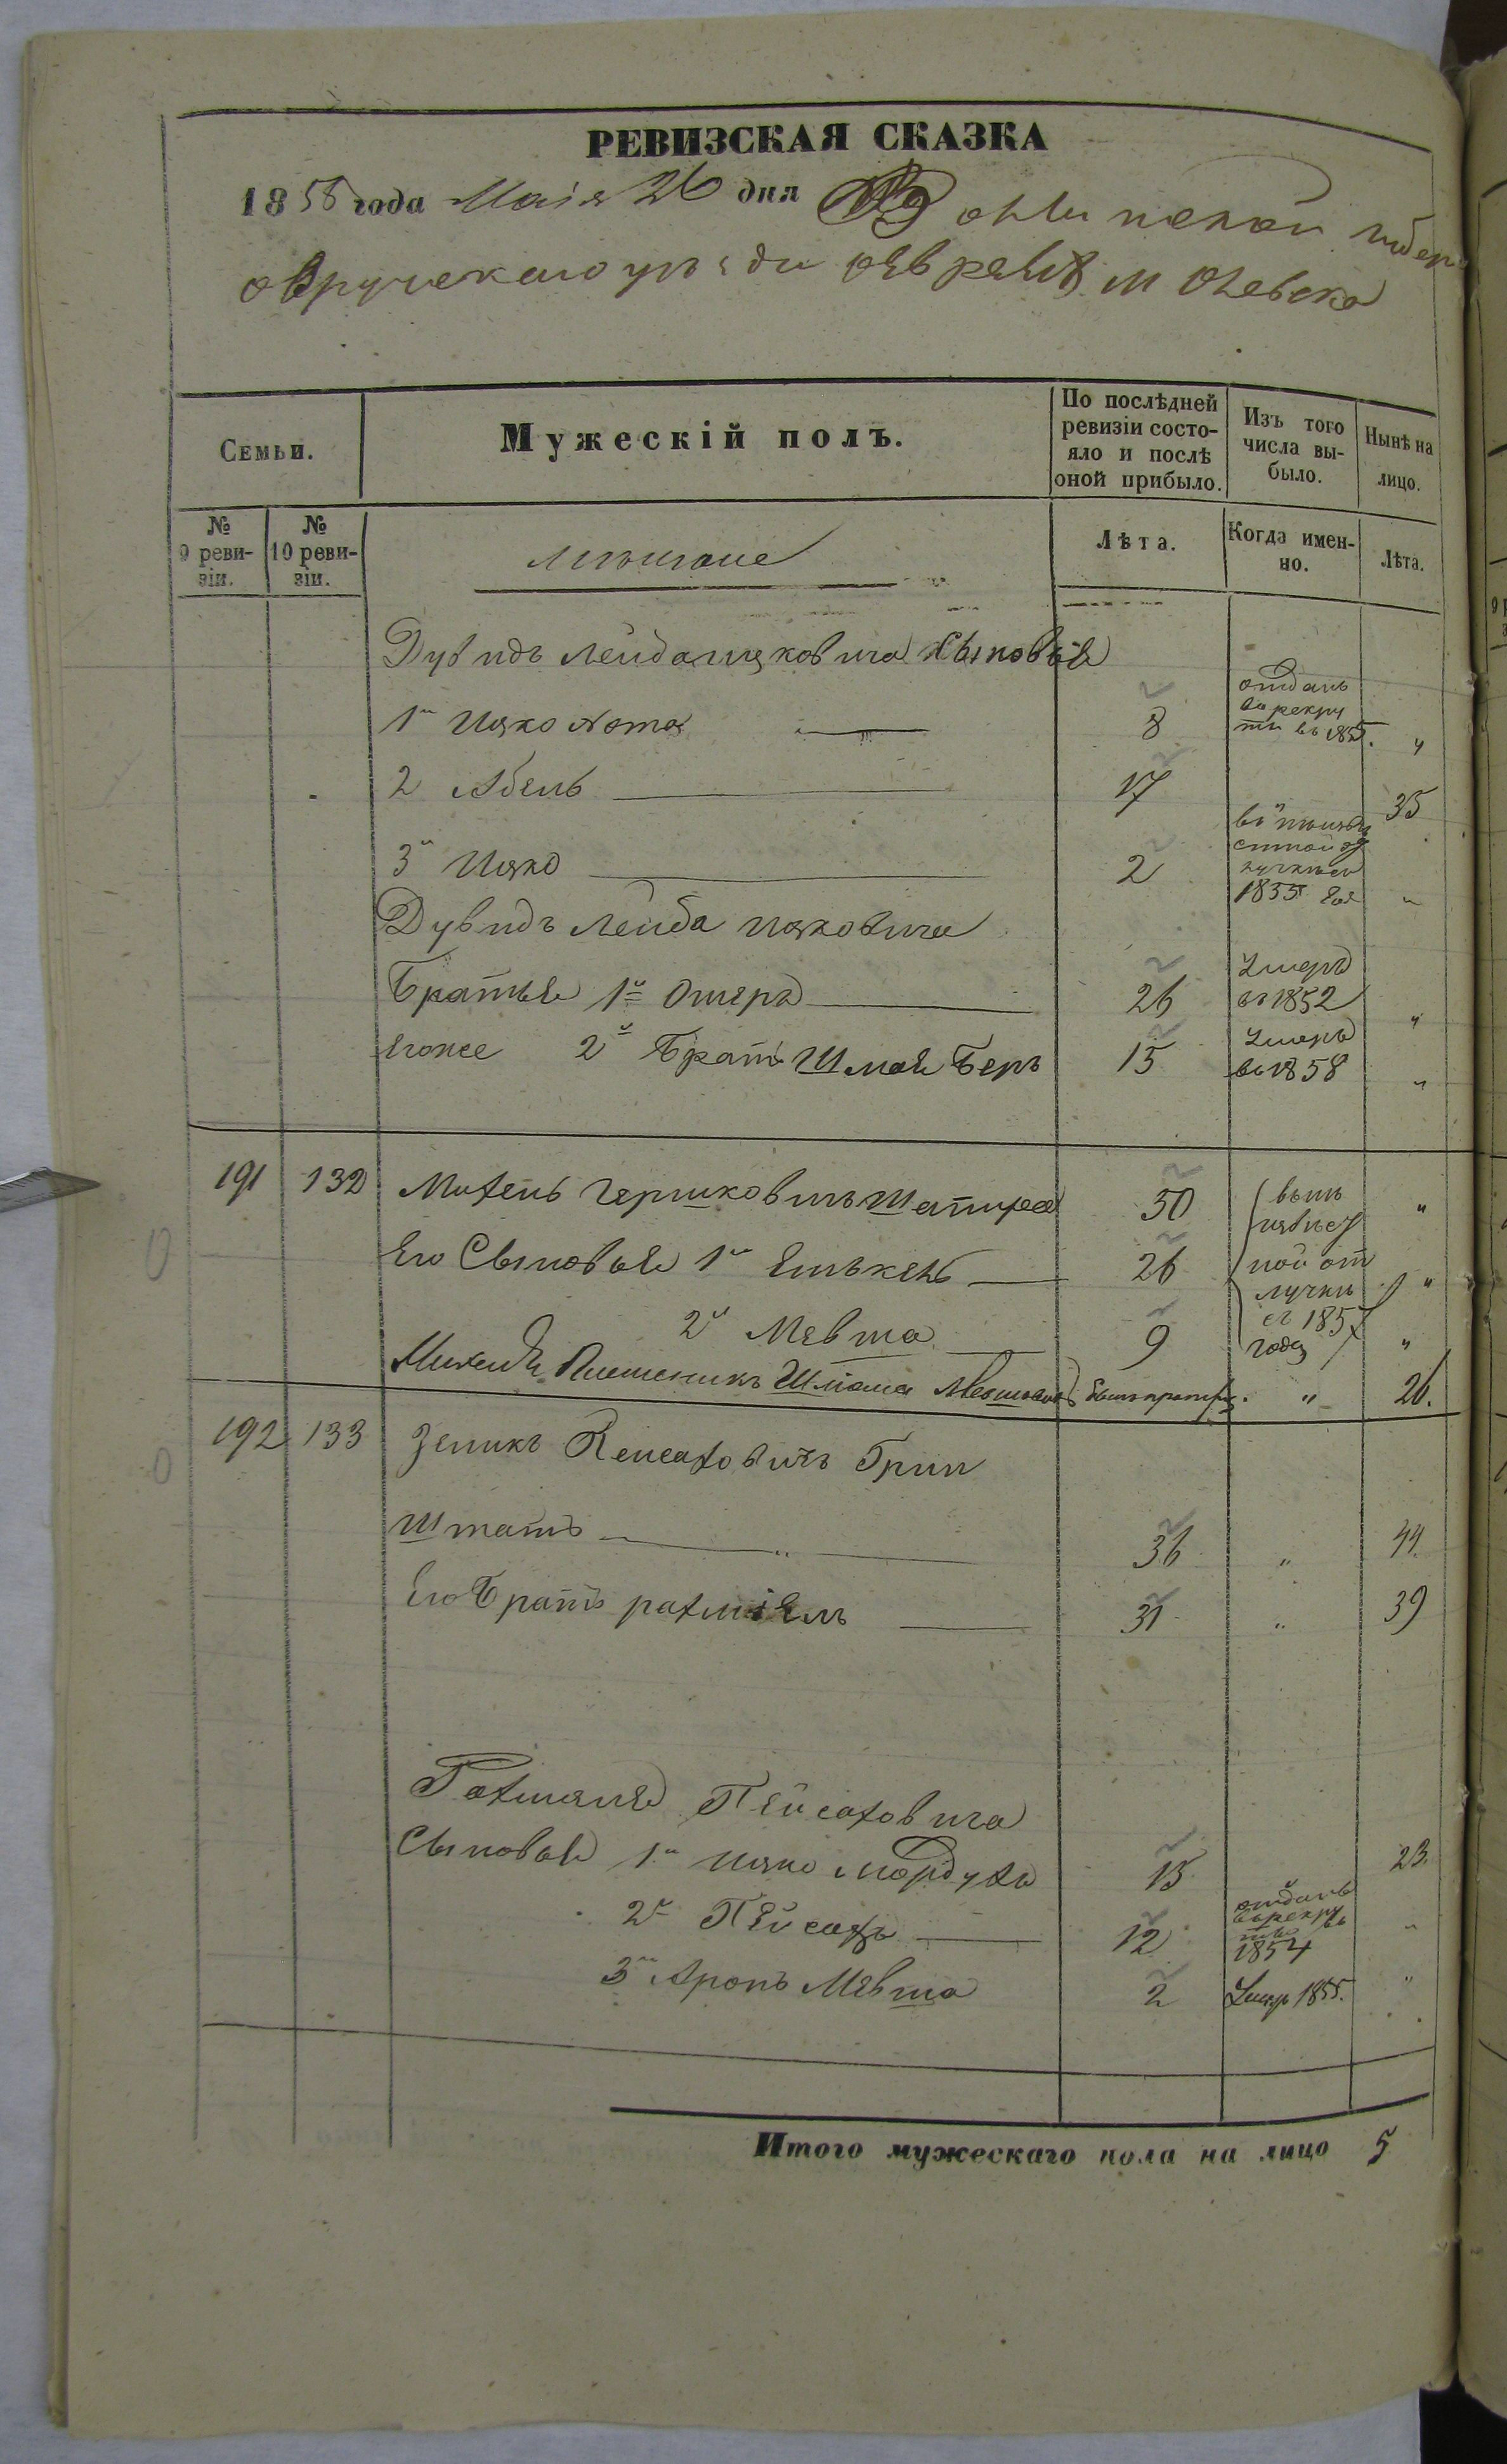 РЕВИЗСКАЯ СКАЗКА
1858 года Маія 26 дня Волынской губер
овручскаго уѣзда евреяхъ м Олевска
Семьи.
Мужескій полъ.
По послѣдней ревизіи состояло и послѣ оной прибыло.
Изъ того числа выбыло.
Нынѣ на лицо.
№ 9 ревизіи.
№ 10 ревизіи.
мѣщане
Лѣта.
Когда именно.
Лѣта.
Дувидъ Лейба ицковича Сыновья
1й Ицко Нота 8 отданъ въ рекруты въ 185 "
2 Абель 17 35
3й Ицко 2 "
Дувидъ Лейба Ицковича
Братья 1й Ошеръ 26 Умеръ въ 1852 "
Егоже 2й Братъ Шмая Беръ 15 Умеръ въ 1858 "
191 132 Михель Гершковичъ Шапира 50 "
Его Сыновья 1й 26 "
2й Мевша 9 "
Михеля Племеникъ Шлиома Мевшовичъ былъ " 26.
192 133 Зеликъ Пейсаховичъ Грин
Штатъ 36 " 44.
Его Братъ рахміель 31 " 39
Рахмиеля Пейсаховича
Сыновья 1й Ицко Мордухъ 15 23.
2й Пейсахъ 12 отданъ въ рекруты въ 1854 "
3й Аронъ Мевша 2 Умеръ 1855. "
Итого мужескаго пола на лицо 5